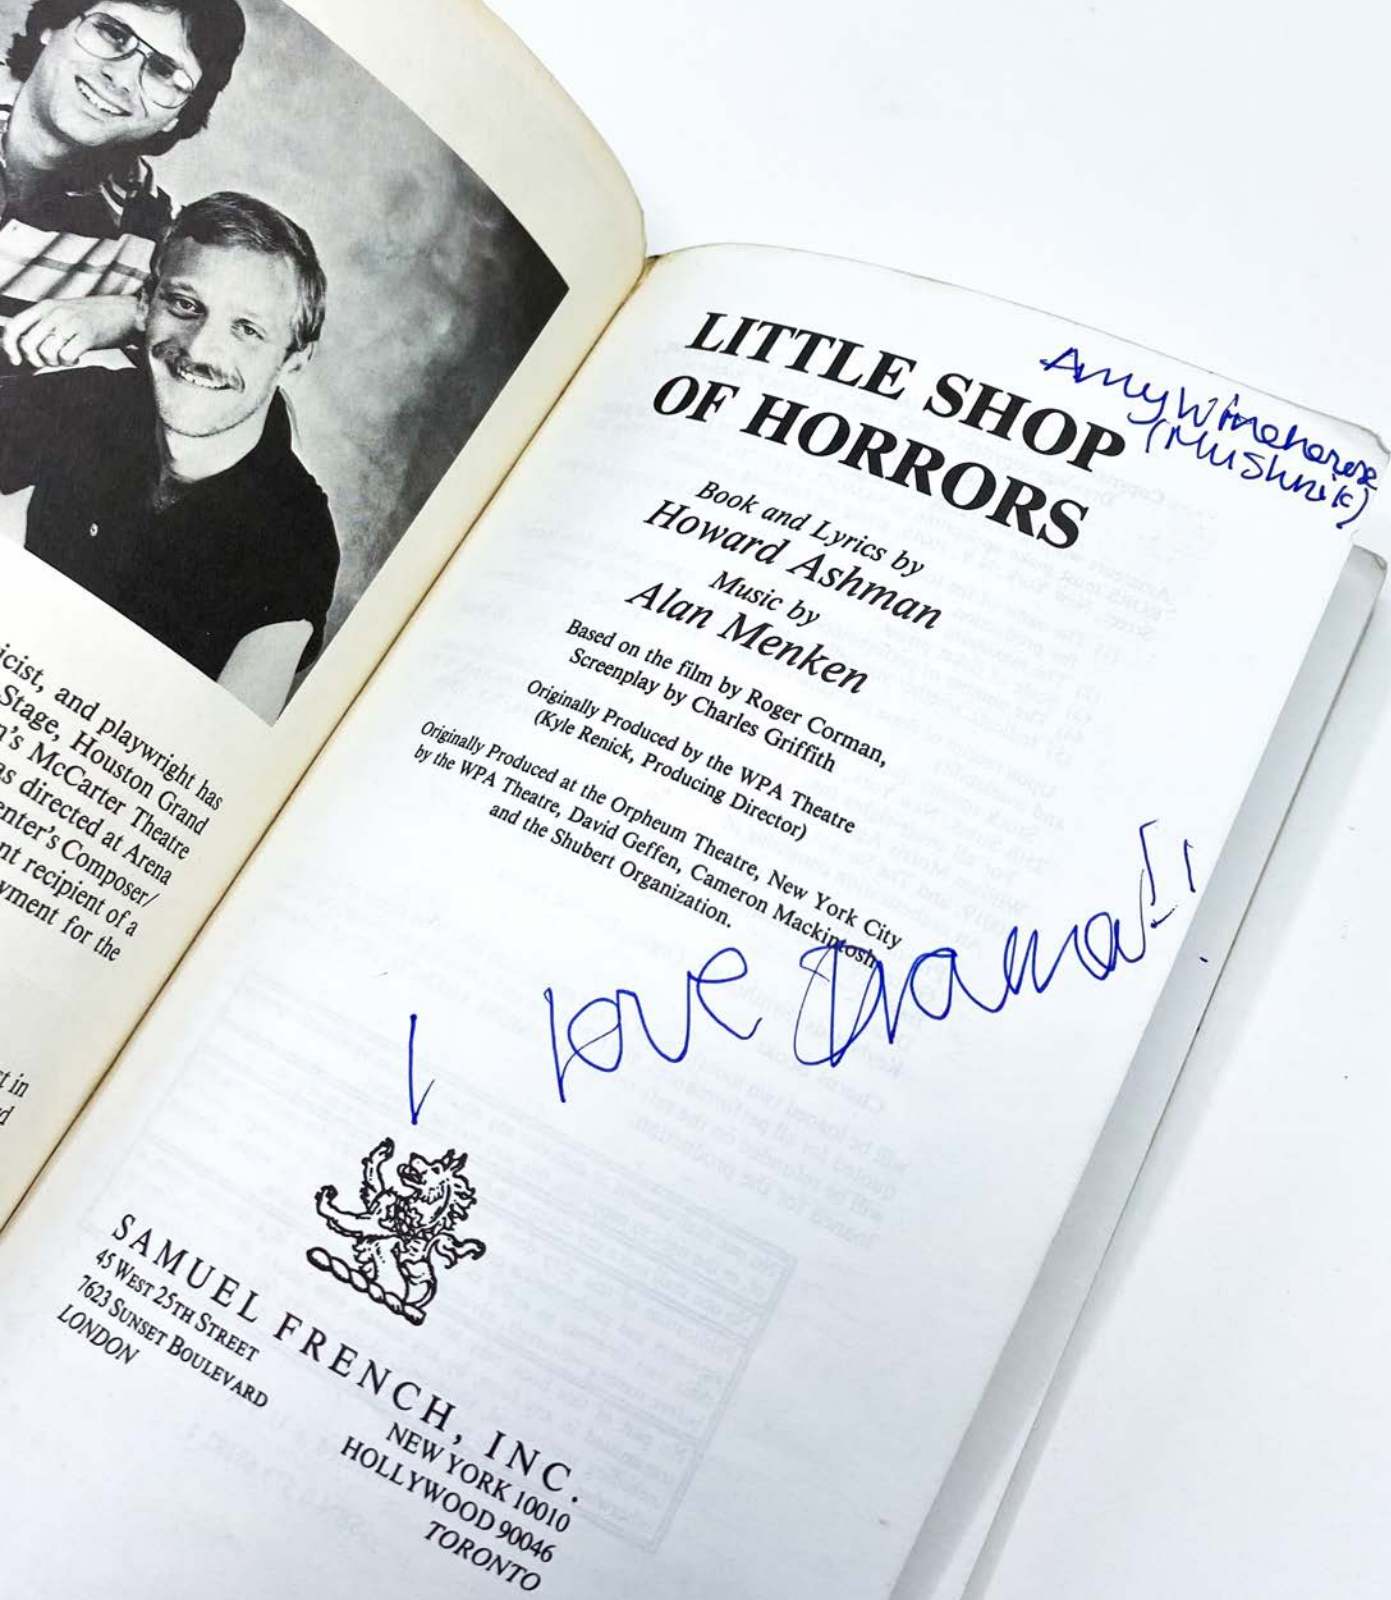 icist, and playwright has
Stage, Houston Grand
n's McCarter Theatre
as directed at Arena
enter's Composer/
nt recipient of a
yment for the
t in
d
LITTLE SHOP
OF HORRORS
Amy Winehouse
(Mushnik)
Book and Lyrics by
Howard Ashman
Music by
Alan Menken
Based on the film by Roger Corman,
Screenplay by Charles Griffith
Originally Produced by the WPA Theatre
(Kyle Renick, Producing Director)
Originally Produced at the Orpheum Theatre, New York City
by the WPA Theatre, David Geffen, Cameron Mackintosh
and the Shubert Organization.
I love drama!!
SAMUEL FRENCH, INC.
45 WEST 25TH STREET NEW YORK 10010
7623 SUNSET BOULEVARD HOLLYWOOD 90046
LONDON TORONTO